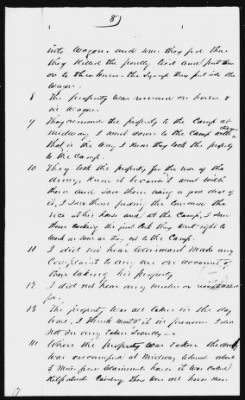 8
into wagons and saw they fed them
they killed the poultry tied and put them
on to their horses the syrup they put into the
wagon.
8 The property was removed on horses &
in wagons
9 They removed the property to the Camp at
Midway I went down to the Camp with
that is the way I know they took the property
to the Camp.
10 They took the property for the use of the
army, I know it because I was with
them and saw them using a good deal of
it, I saw them feeding the corn and the
at his house and at the Camp, I saw
them cooking the just they went right to
work as soon as they got to the Camp.
11 I did not hear Claimant make any
Complaint to any one on account of
their taking his property
12 I did not hear any
for.
13 The property was all taken in the day
time, I think most of it in forenoon I saw
not any taken Secretly.
14 When the property was taken the army
was encamped at Midway about
5 miles from Claimants house it was called
Kilpatrick Cavalry they were all here
17